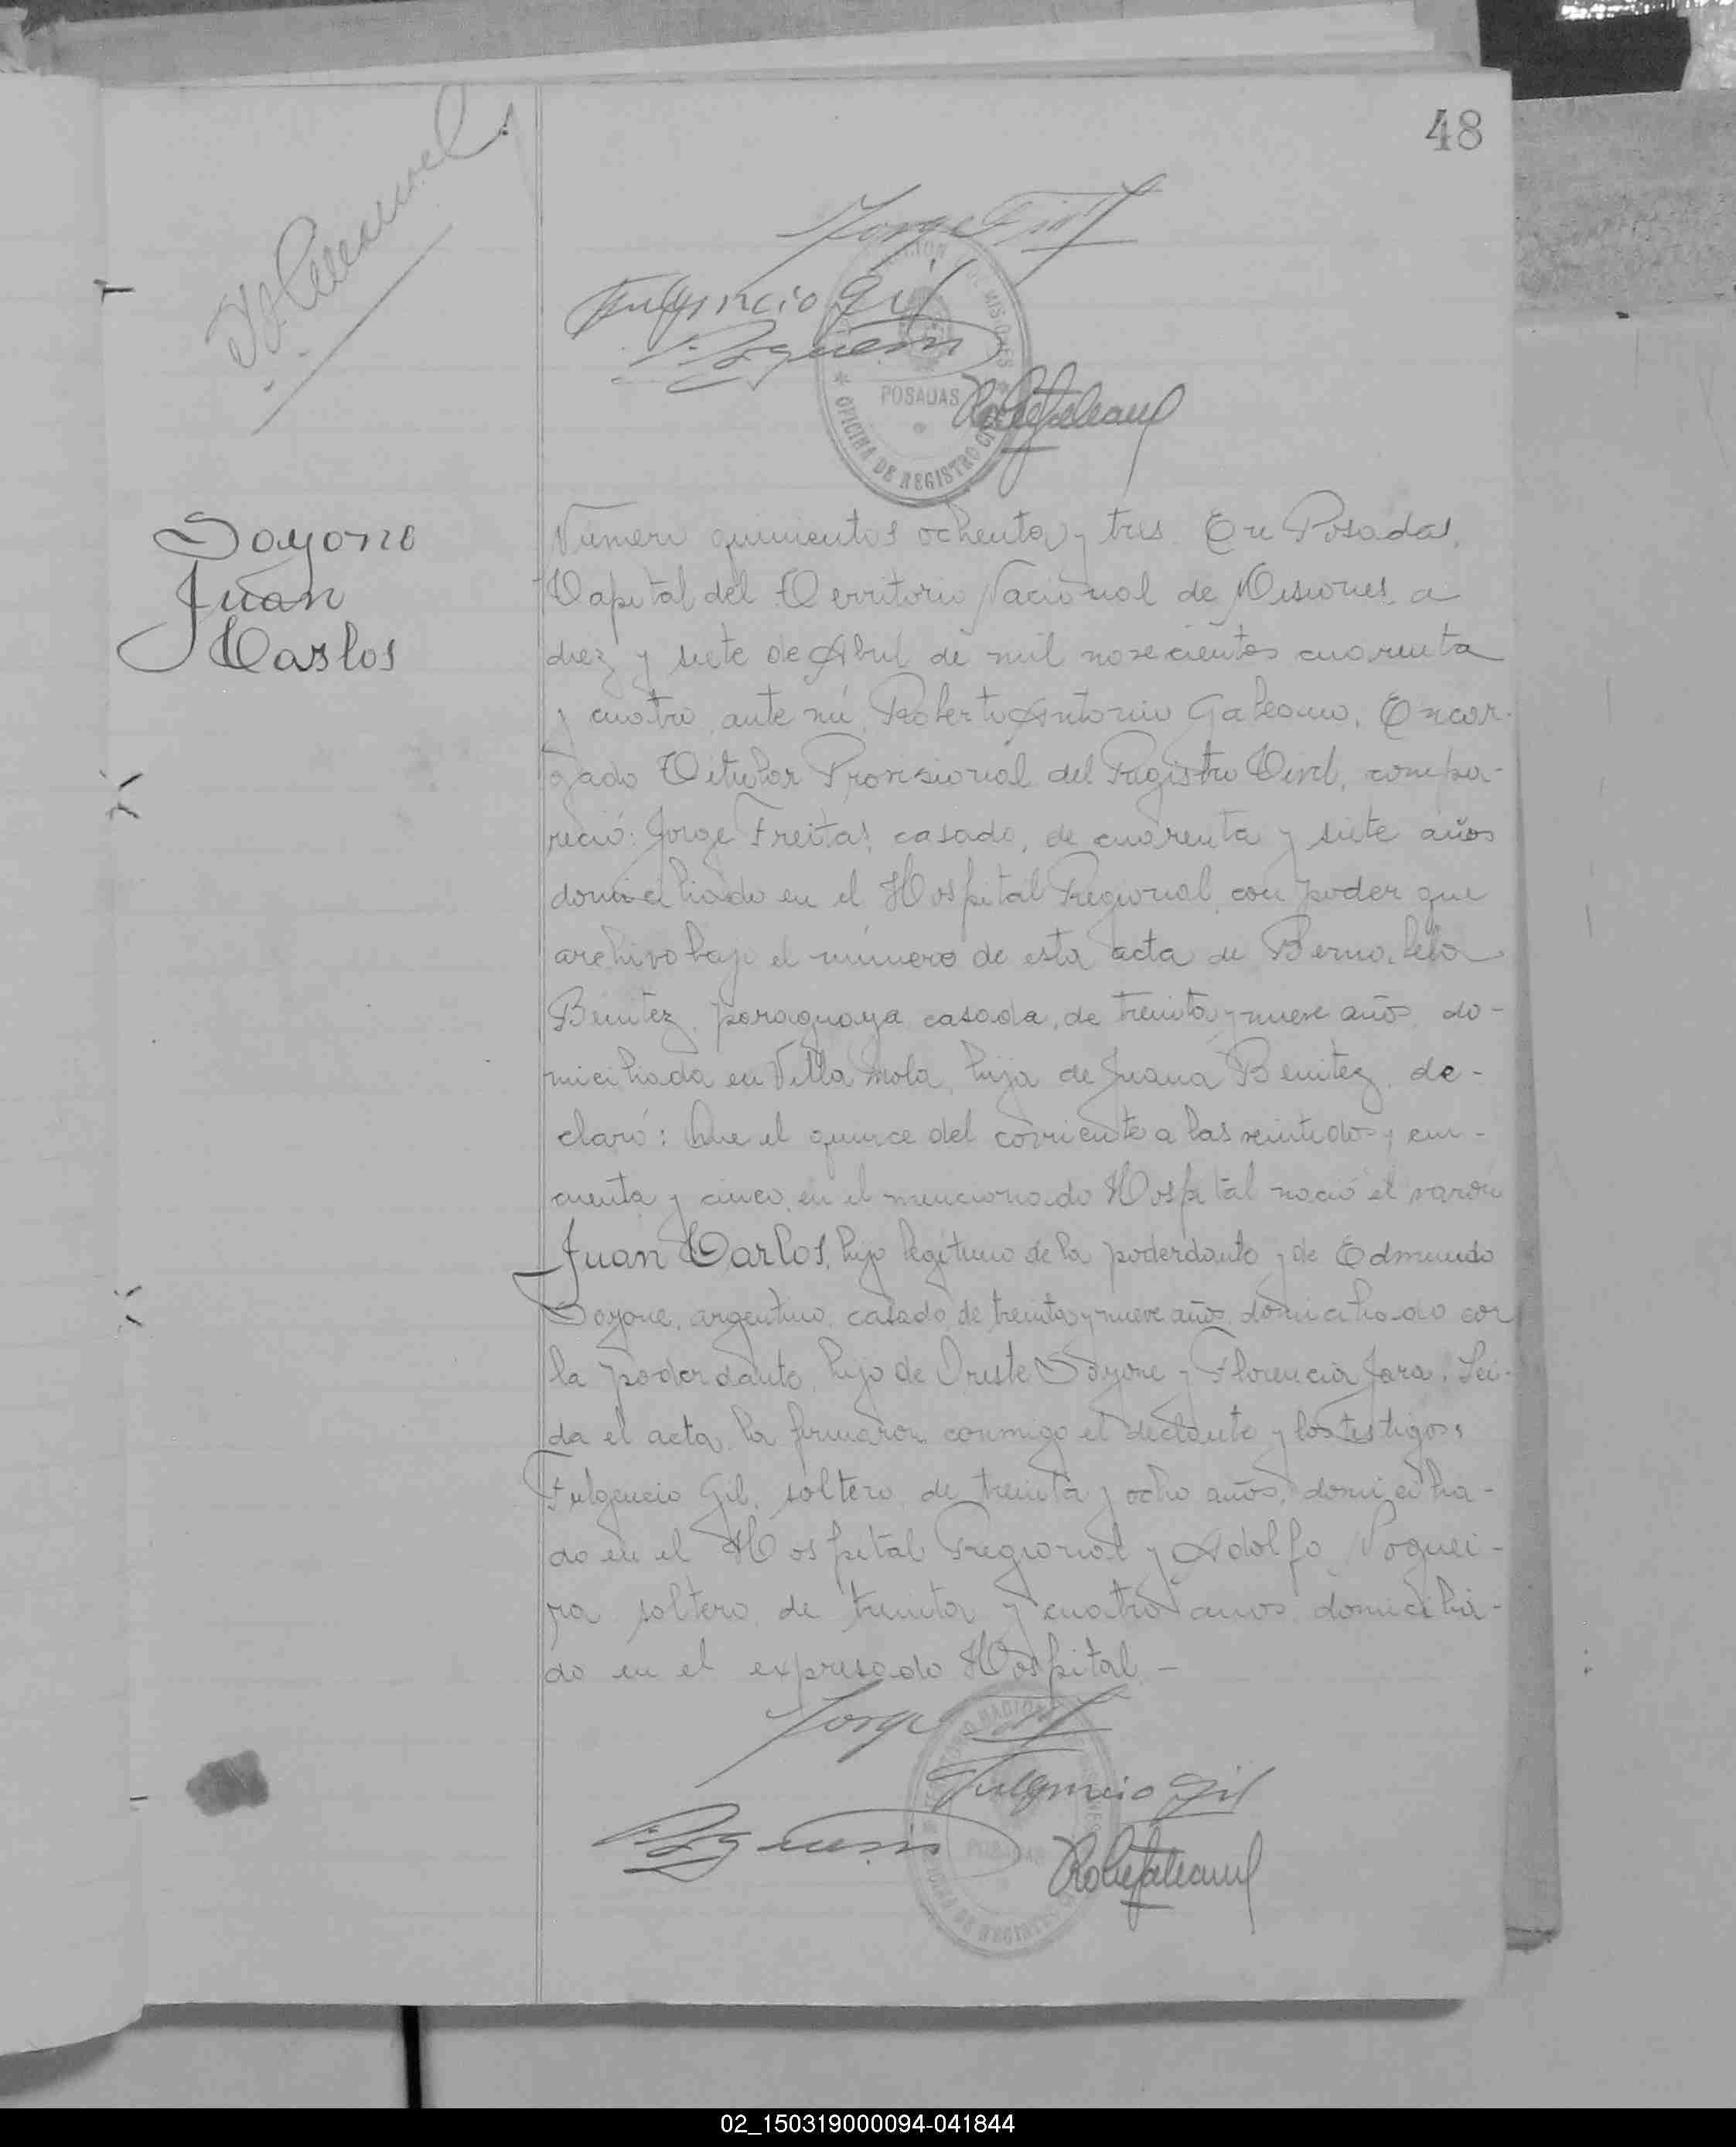 48
Jorge
Fulgencio Gil
POSADAS
OFICINA DE REGISTRO
Soyone
Juan
Carlos
Número quinientos ochenta y tres. En Posadas,
Capital del Territorio Nacional de Misiones a
diez y siete de Abril de mil novecientos cuarenta
y cuatro, ante mí, Roberto Antonio Galeano, Encar-
gado Titular Provisional del Registro Civil, compa-
reció: Jorge Freitas, casado, de cuarenta y siete años
domiciliado en el Hospital Regional, con poder que
archivo bajo el número de esta acta de
Benitez, paraguaya, casada, de treinta y nueve años, do-
miciliada en Villa Mola, hija de Juana Benitez, de-
claró: Que el quince del corriente a las veintidos y cin-
cuenta y cinco, en el mencionado Hospital nació el varón
Juan Carlos, hijo legítimo de la poderdante y de Edmundo
Soyone, argentino, casado, de treinta y nueve años, domiciliado con
la poderdante, hijo de Oreste Soyone y Florencia Jara. Lei-
da el acta, la firmaron conmigo el declante y los testigos:
Fulgencio Gil, soltero, de treinta y ocho años, domicilia-
do en el Hospital Regional y Adolfo Noguei-
ra, soltero, de treinta y cuatro años, domicilia-
do en el expresado Hospital.-
Jorge
Fulgencio Gil
POSADAS
02_150319000094-041844